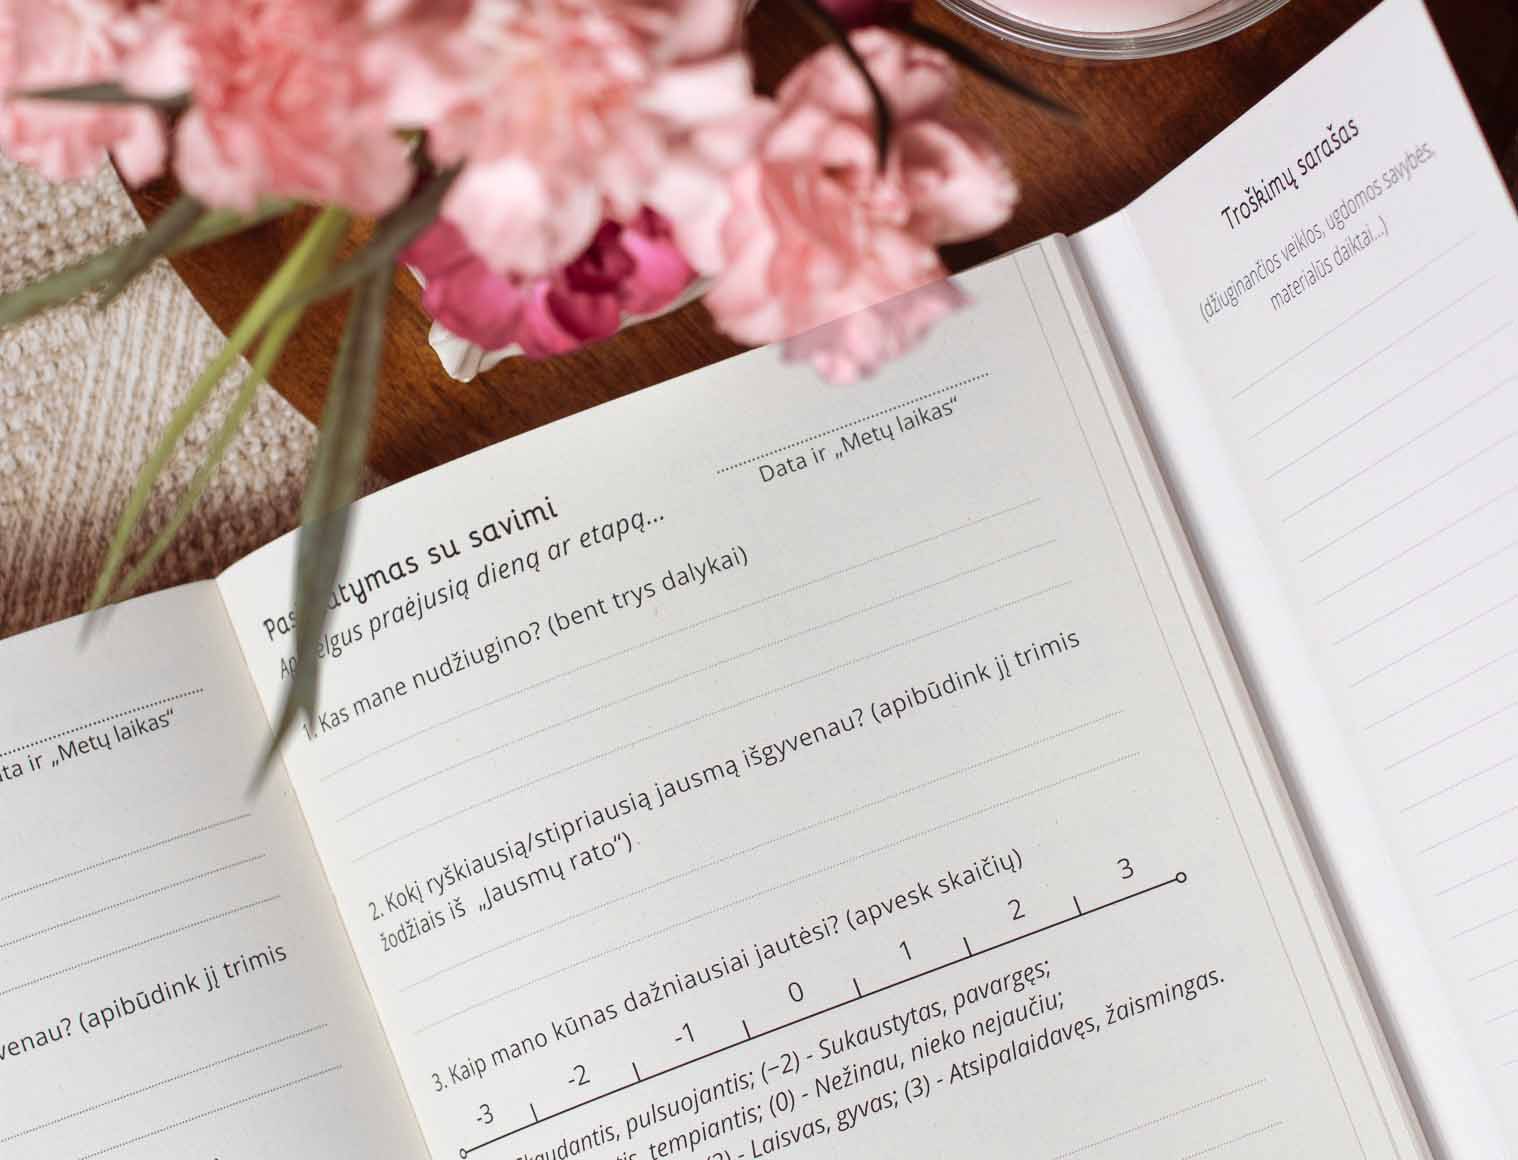 ta ir „Metų laikas“
venau? (apibūdink jį trimis
Data ir „Metų laikas“
su savimi
praėjusią dieną ar etapą...
1. Kas mane nudžiugino? (bent trys dalykai)
2. Kokį ryškiausią/stipriausią jausmą išgyvenau? (apibūdink jį trimis
žodžiais iš „Jausmų rato“)
3. Kaip mano kūnas dažniausiai jautėsi? (apvesk skaičių)
-3 -2 -1 0 1 2 3
pulsuojantis; (−2) - Sukaustytas, pavargęs;
tempiantis; (0) - Nežinau, nieko nejaučiu;
- Laisvas, gyvas; (3) - Atsipalaidavęs, žaismingas.
Troškimų sąrašas
(džiuginančios veiklos, ugdomos savybės,
materialūs daiktai...)